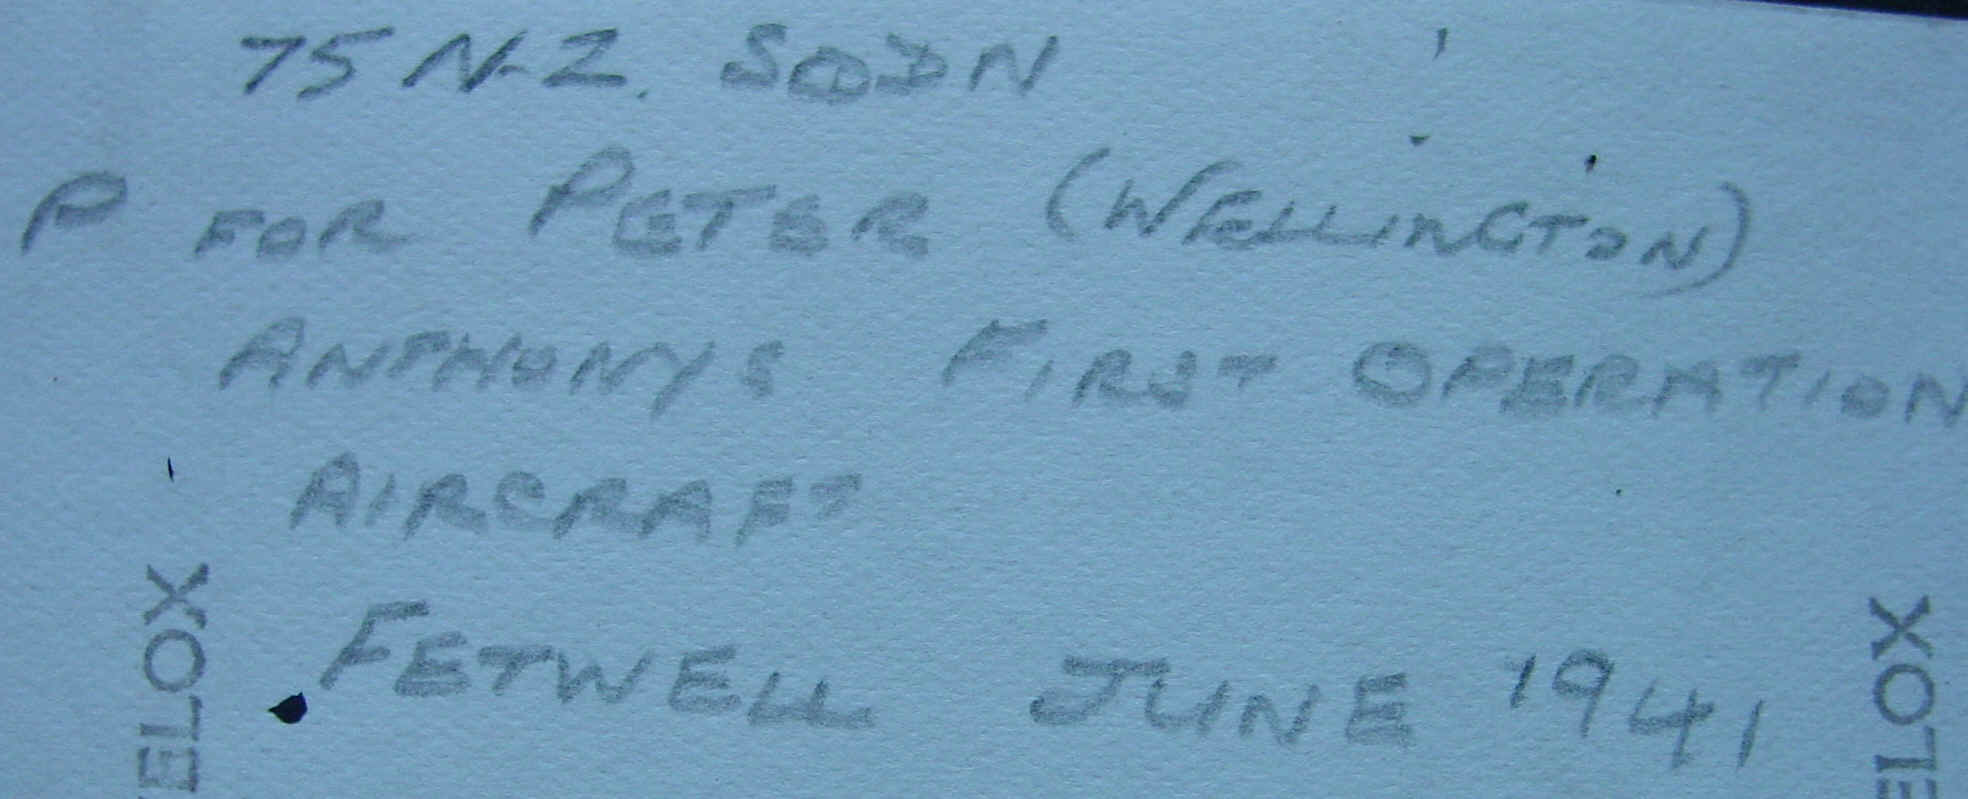 75 N.Z. SQDN
P FOR PETER (WELLINGTON)
ANTHONYS FIRST OPERATION
AIRCRAFT
FETWELL JUNE 1941
VELOX
ELOX